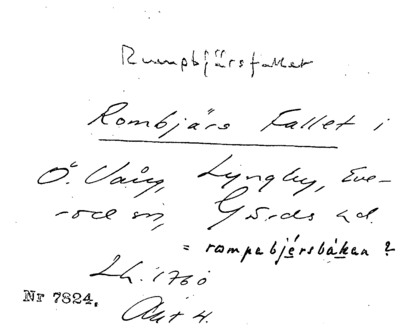 Rumpbjärsfallet
Rombjärs Fallet i
Ö. Vång, Lyngby, Eve-
röd sn, Gärds hd.
= rompabjérsbákan ?
Lh. 1760
Nr 7824.
Akt 4.